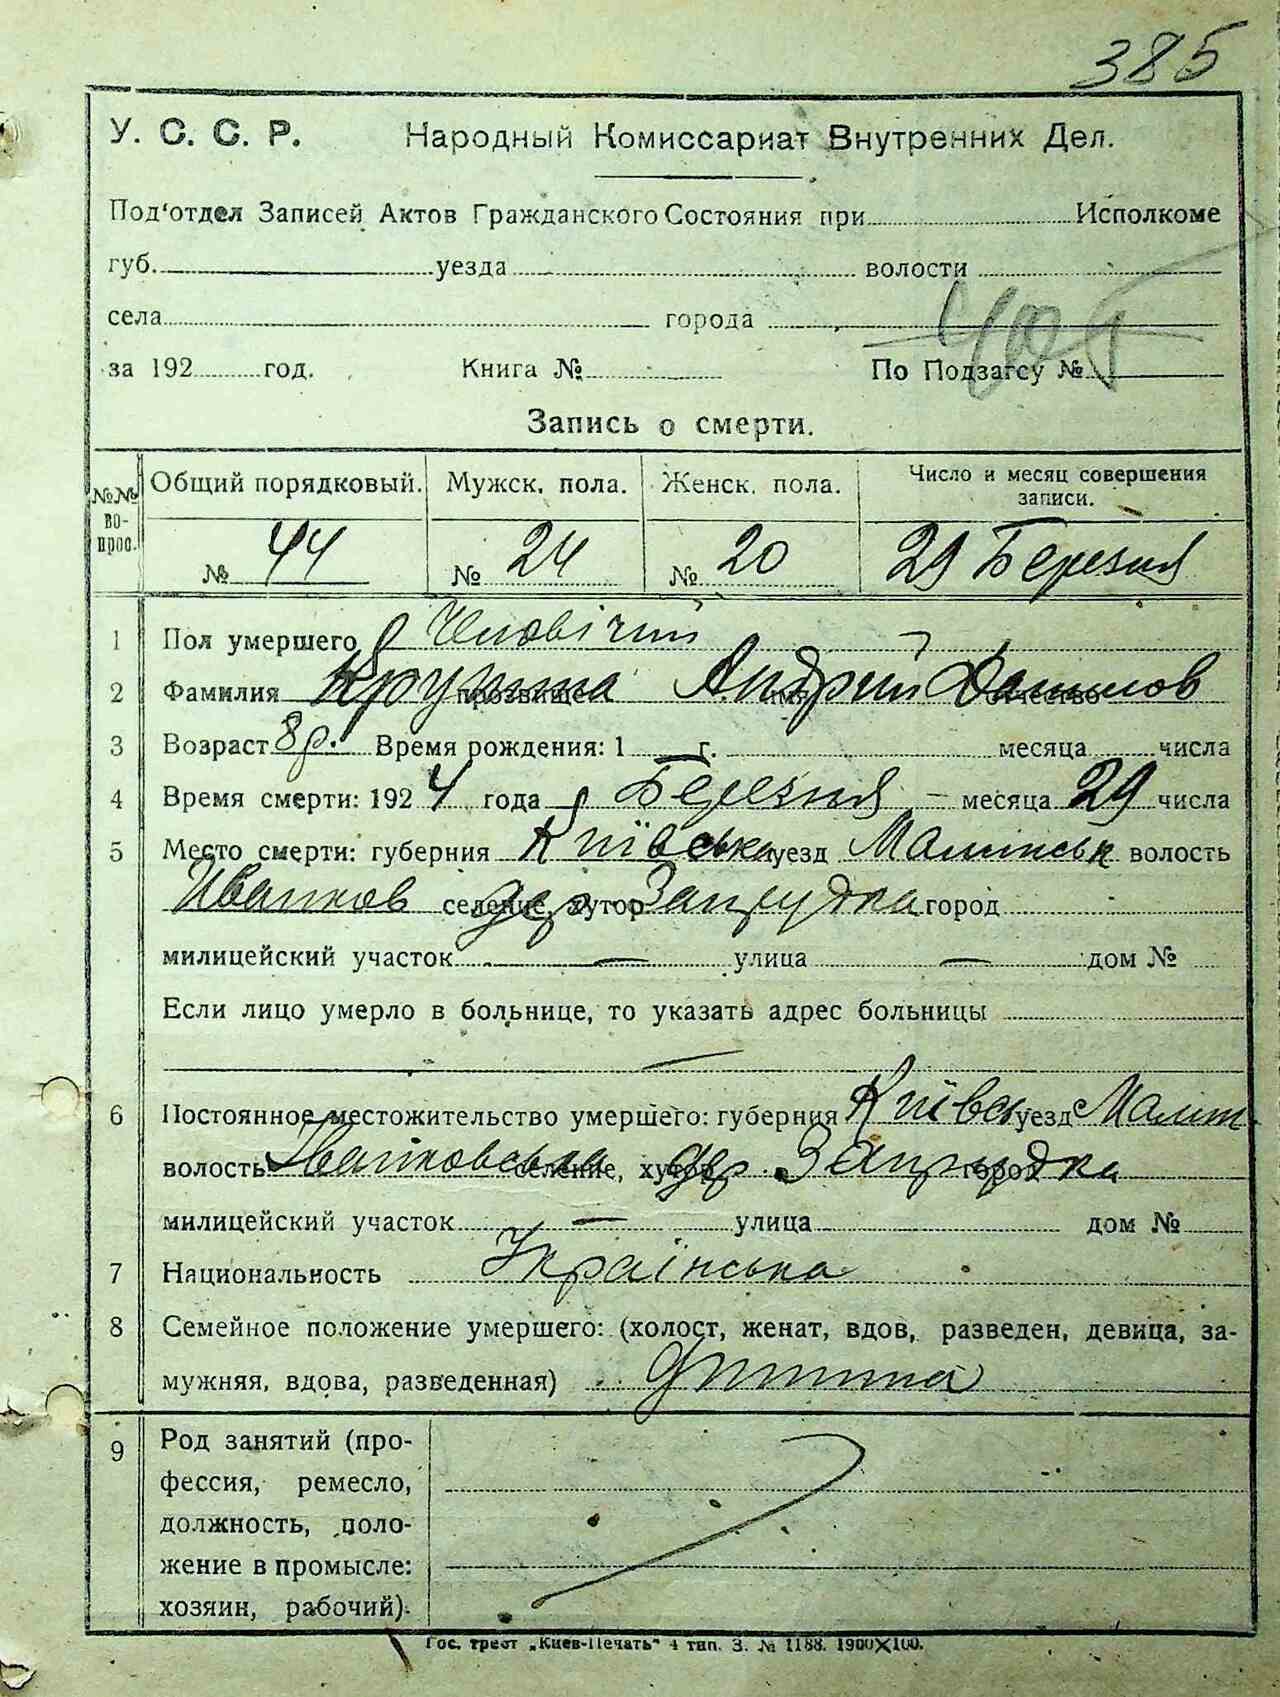 385
У. С. С. Р. Народный Комиссариат Внутренних Дел.
Под'отдел Записей Актов Гражданского Состояния при Исполкоме
губ. уезда волости
села города
за 192 год. Книга № По Подзагсу №
Запись о смерти.
№№ вопрос. Общий порядковый. Мужск. пола. Женск. пола. Число и месяц совершения записи.
№ 44 № 24 № 20 29 Березня
1 Пол умершего Чоловічий
2 Фамилия прозвище Андрий имя отчество Данилов
3 Возраст 8 р. Время рождения: 1 г. месяца числа
4 Время смерти: 1924 года Березня — месяца 29 числа
5 Место смерти: губерния Київська уезд Малинськ волость
Иванков селение, хутор дер. Запрудка город
милицейский участок — улица — дом №
Если лицо умерло в больнице, то указать адрес больницы
—
6 Постоянное местожительство умершего: губерния Київсь уезд Малин.
волость Иванковська селение, хутор дер. Запрудка город
милицейский участок — улица дом №
7 Национальность Українська
8 Семейное положение умершего: (холост, женат, вдов, разведен, девица, за-
мужняя, вдова, разведенная) дитина
9 Род занятий (про-
фессия, ремесло,
должность, поло-
жение в промысле:
хозяин, рабочий).
Гос. трест „Киев-Печать“ 4 тип. З. № 1188. 1900X100.